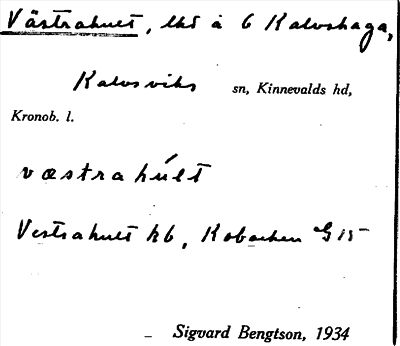 Västrahult, lht å 6 Kalvshaga,
Kalvsviks sn, Kinnevalds hd,
Kronob. l.
væstrahúlt
Vestrahult hb, G 15
Sigvard Bengtson, 1934